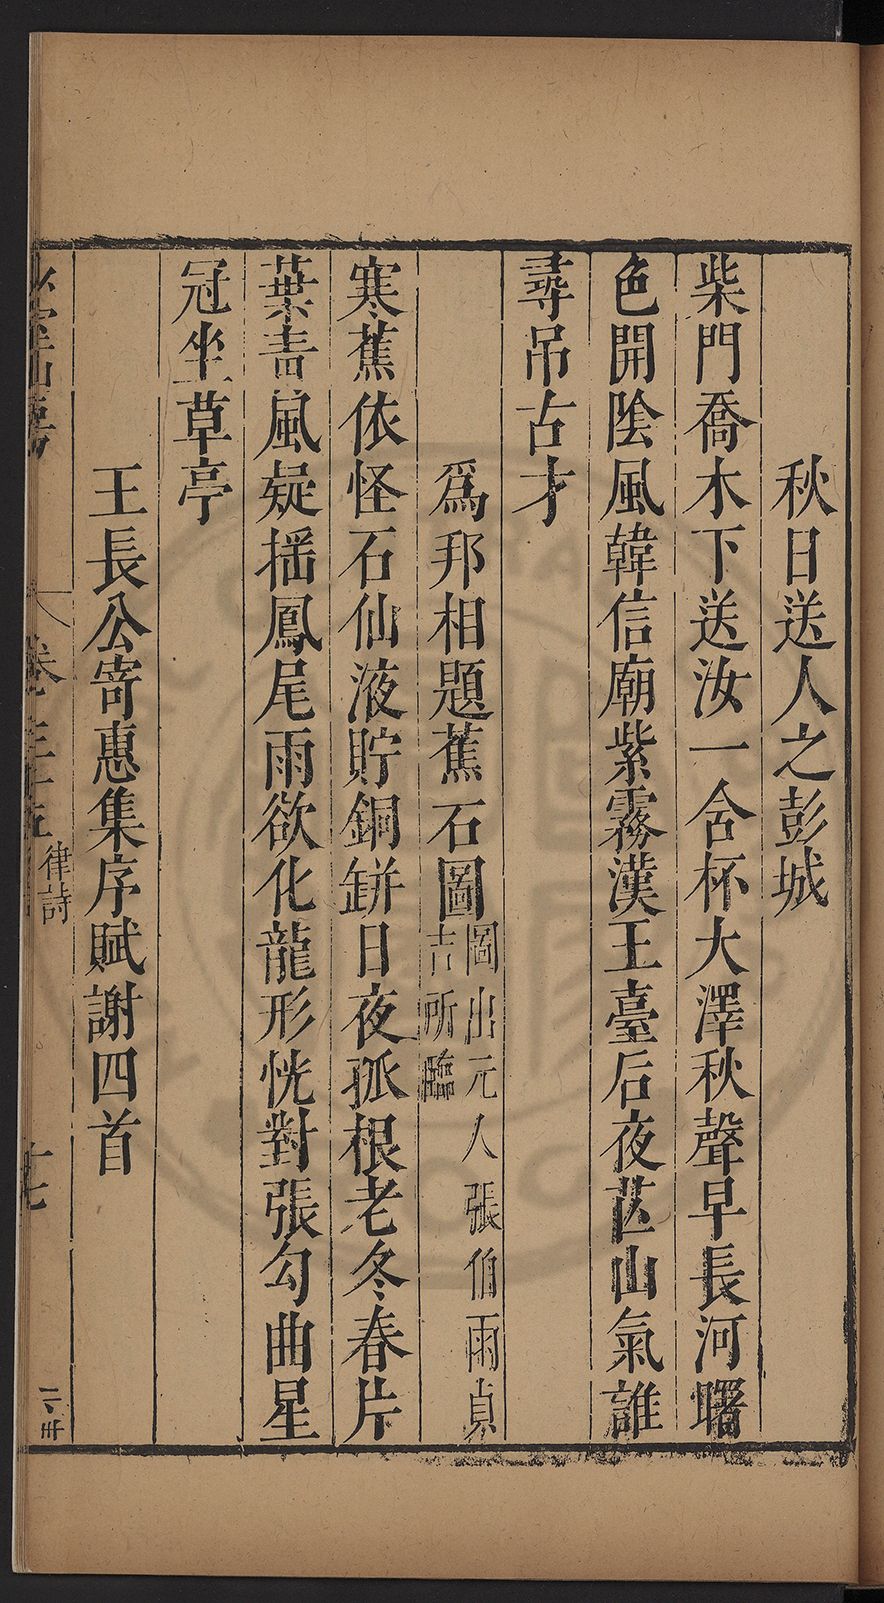 秋日送人之彭城
柴門喬木下送汝一含杯大澤秋聲早長河曙
色開陰風韓信廟紫霧漢王臺后夜芒山氣誰
尋吊古才
爲邦相題蕉石圖圖出元人張伯雨貞
吉所臨
寒蕉依怪石仙液貯銅缾日夜孤根老冬春片
葉青風疑揺鳳尾雨欲化龍形恍對張勾曲星
冠坐草亭
王長公寄惠集序賦謝四首
房
卷之三十五
律詩
十七